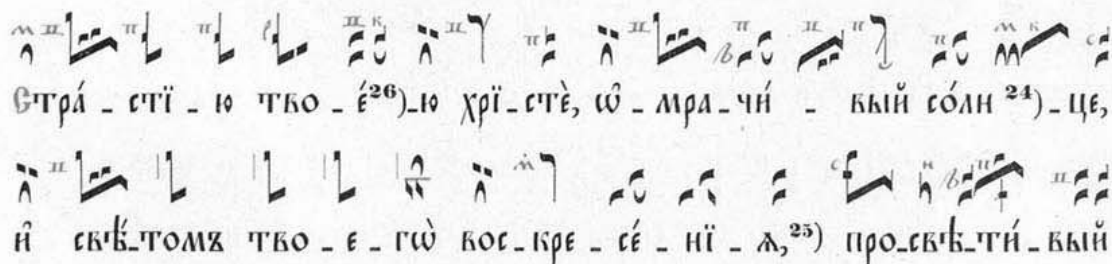 Стра́ _ стї _ ю тво _ е́²⁶)_ю хрї_стѐ, ѡ҆ _ мра _ чи́ _ вый со́лн ²⁴) _ це,
и҆ свѣ́_томъ тво _ е _ гѡ̀ вос _ кре _ се́ _ нї _ ѧ,²⁵) про_свѣ_ти́ _ вый